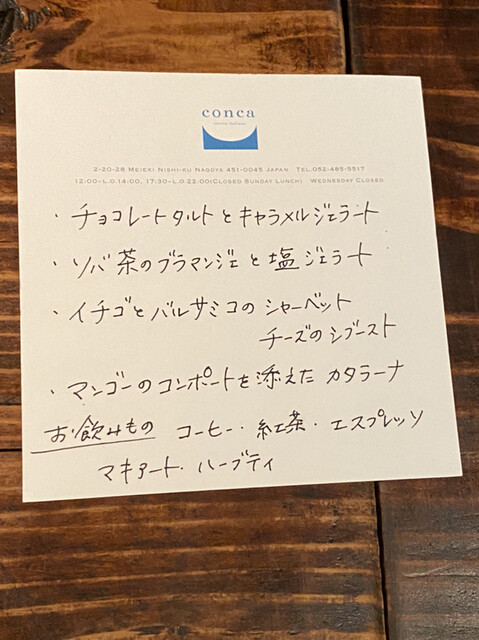 conca
2-20-28 Meieki Nishi-ku Nagoya 451-0045 Japan Tel.052-485-5517
12:00-L.O.14:00, 17:30-L.O.22:00(Closed Sunday Lunch) Wednesday Closed
・チョコレートタルトとキャラメルジェラート
・ソバ茶のブラマンジェと塩ジェラート
・イチゴとバルサミコのシャーベット
チーズのシブースト
・マンゴーのコンポートを添えたカタラーナ
お飲みもの コーヒー・紅茶・エスプレッソ
マキアート・ハーブティ